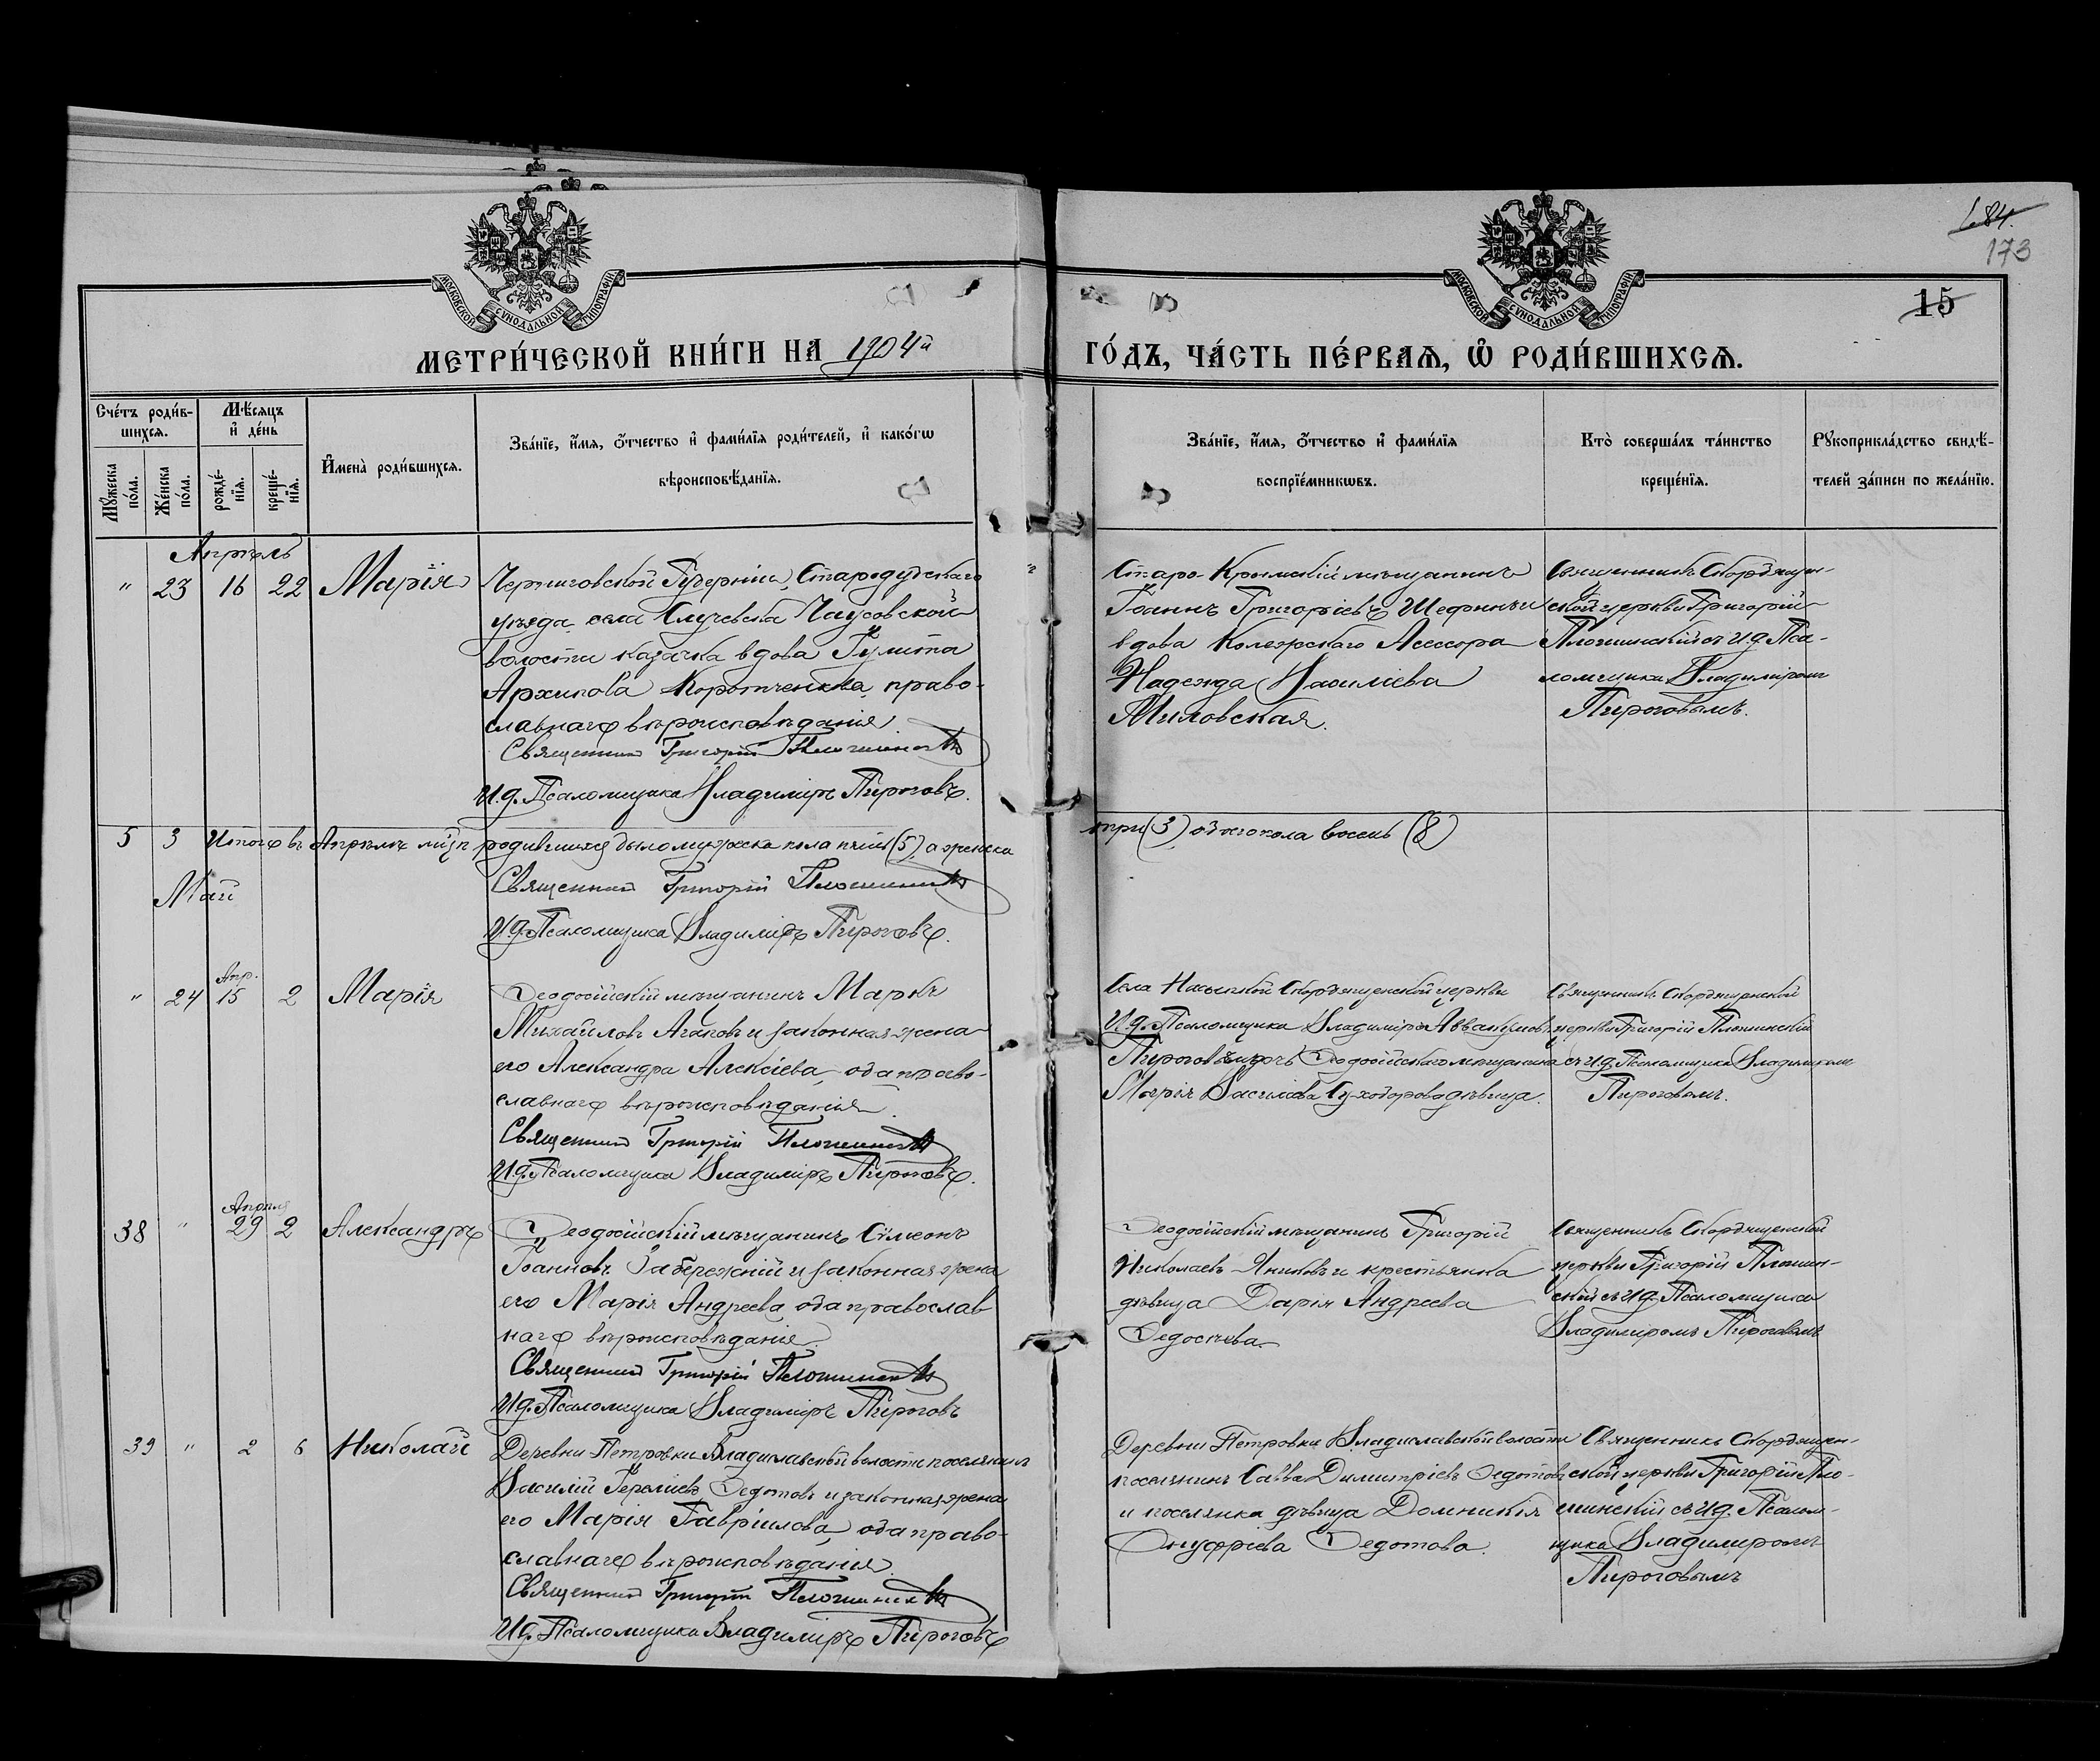 184.
173
15
МОСКОВСКОЙ СѴНОДАЛЬНОЙ ТИПОГРАФІИ
МОСКОВСКОЙ СѴНОДАЛЬНОЙ ТИПОГРАФІИ
МЕТРИ́ЧЕСКОЙ КНИ́ГИ НА 1904й
ГО́ДЪ, ЧА́СТЬ ПЕ́РВАѦ, Ѡ РОДИ́ВШИХСѦ.
Сче́тъ роди́в-
шихсѧ.
Мꙋжеска
по́ла.
Же́нска
по́ла.
Мѣ́сѧцъ
и҆ де́нь
рожде́-
нїѧ.
креще́-
нїѧ.
И҆мена̀ роди́вшихсѧ.
Зва́нїе, и҆́мѧ, ѻ҆́тчество и҆ фами́лїѧ роди́телей, и҆ како́гѡ
вѣроисповѣ́данїѧ.
Зва́нїе, и҆́мѧ, ѻ҆́тчество и҆ фами́лїѧ
воспрїе́мникѡвъ.
Кто̀ соверша́лъ та́инство
креще́нїѧ.
Рꙋкоприкла́дство свидѣ́-
телей за́писи по жела́нїю.
Апрѣль
" 23 16 22 Марія
Черниговской Губерніи, Стародубскаго
уѣзда села Случевска Чаусовской
волости казачка вдова Іулита
Архипова Коротченкна, право-
славнаго вѣроисповѣданія
Священникъ Григорій Плошинскій
И.д. Псаломщика Владиміръ Пироговъ.
Старо-Крымскій мѣщанинъ
Іоаннъ Григоріевъ и
вдова Колежскаго Ассесора
Надежда Василіева
Миловская.
Священникъ Скорбящен-
ской церкви Григорій
Плошинскій съ И.д. Пса-
ломщика Владиміромъ
Пироговымъ.
5 3 Итого въ Апрѣлѣ м-цѣ родившихся было мужеска пола пять (5), а женска
три (3) обоего пола восемь (8)
Священникъ Григорій Плошинскій
И.д. Псаломщика Владиміръ Пироговъ.
Май
Апр.
" 24 15 2 Марія
Ѳеодосійскій мѣщанинъ Маркъ
Михайловъ Агаповъ и законная жена
его Александра Алексіева, оба право-
славнаго вѣроисповѣданія.
Священникъ Григорій Плошинскій
И.д. Псаломщика Владиміръ Пироговъ.
Села Насыпкой Скорбященской церкви
И.д. Псаломщика Владиміръ Аввакумовъ
Пироговъ и дочь Ѳеодосійскаго мѣщанина
Марія Василіева Суходорова дѣвица.
Священникъ Скорбященской
церкви Григорій Плошинскій
съ И.д. Псаломщика Владиміромъ
Пироговымъ.
Апрѣля
38 " 29 2 Александръ
Ѳеодосійскій мѣщанинъ Сѵмеонъ
Іоанновъ Забережній и законная жена
его Марія Андреева, оба православ
наго вѣроисповѣданія.
Священникъ Григорій Плошинскій
И.д. Псаломщика Владиміръ Пироговъ
Ѳеодосійскій мѣщанинъ Григорій
Николаевъ Яниковъ и крестьянка
дѣвица Дарія Андреева
Ѳедосѣева
Священникъ Скорбященской
церкви Григорій Плошин-
скій съ И.д. Псаломщика
Владиміромъ Пироговымъ
39 " 2 6 Николай
Деревни Петровки Владиславской волости поселянинъ
Василій Ѳедотовъ и законная жена
его Марія Гавріилова, оба право-
славнаго вѣроисповѣданія
Священникъ Григорій Плошинскій
И.д. Псаломщика Владиміръ Пироговъ
Деревни Петровки Владиславской волости
поселянинъ Савва Димитріевъ Ѳедотовъ
и поселянка дѣвица Домникія
Онуфріева Ѳедотова.
Священникъ Скорбящен-
ской церкви Григорій Пло-
шинскій съ И.д. Псалом-
щика Владиміромъ
Пироговымъ